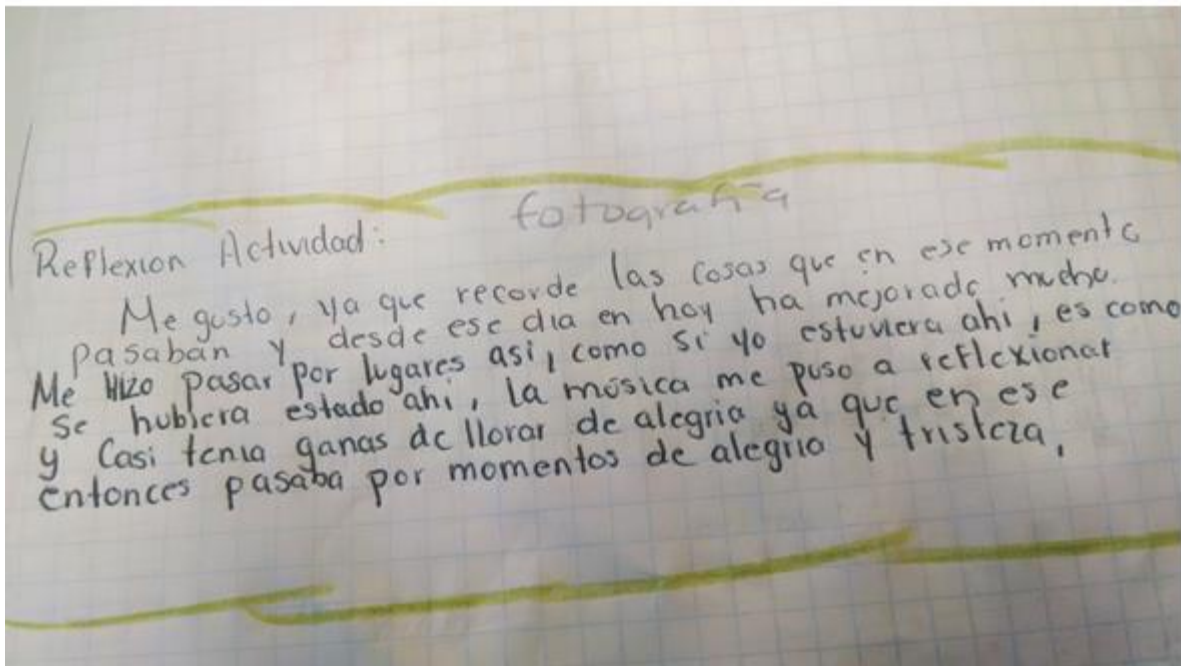 fotografia
Reflexion Actividad:
Me gusto, ya que recorde las cosas que en ese momento
pasaban y desde ese dia en hoy ha mejorado mucho.
Me Hizo pasar por lugares asi, como si yo estuviera ahi, es como
se hubiera estado ahi, la música me puso a reflexionar
y Casi tenia ganas de llorar de alegria ya que en ese
entonces pasaba por momentos de alegria y tristeza,